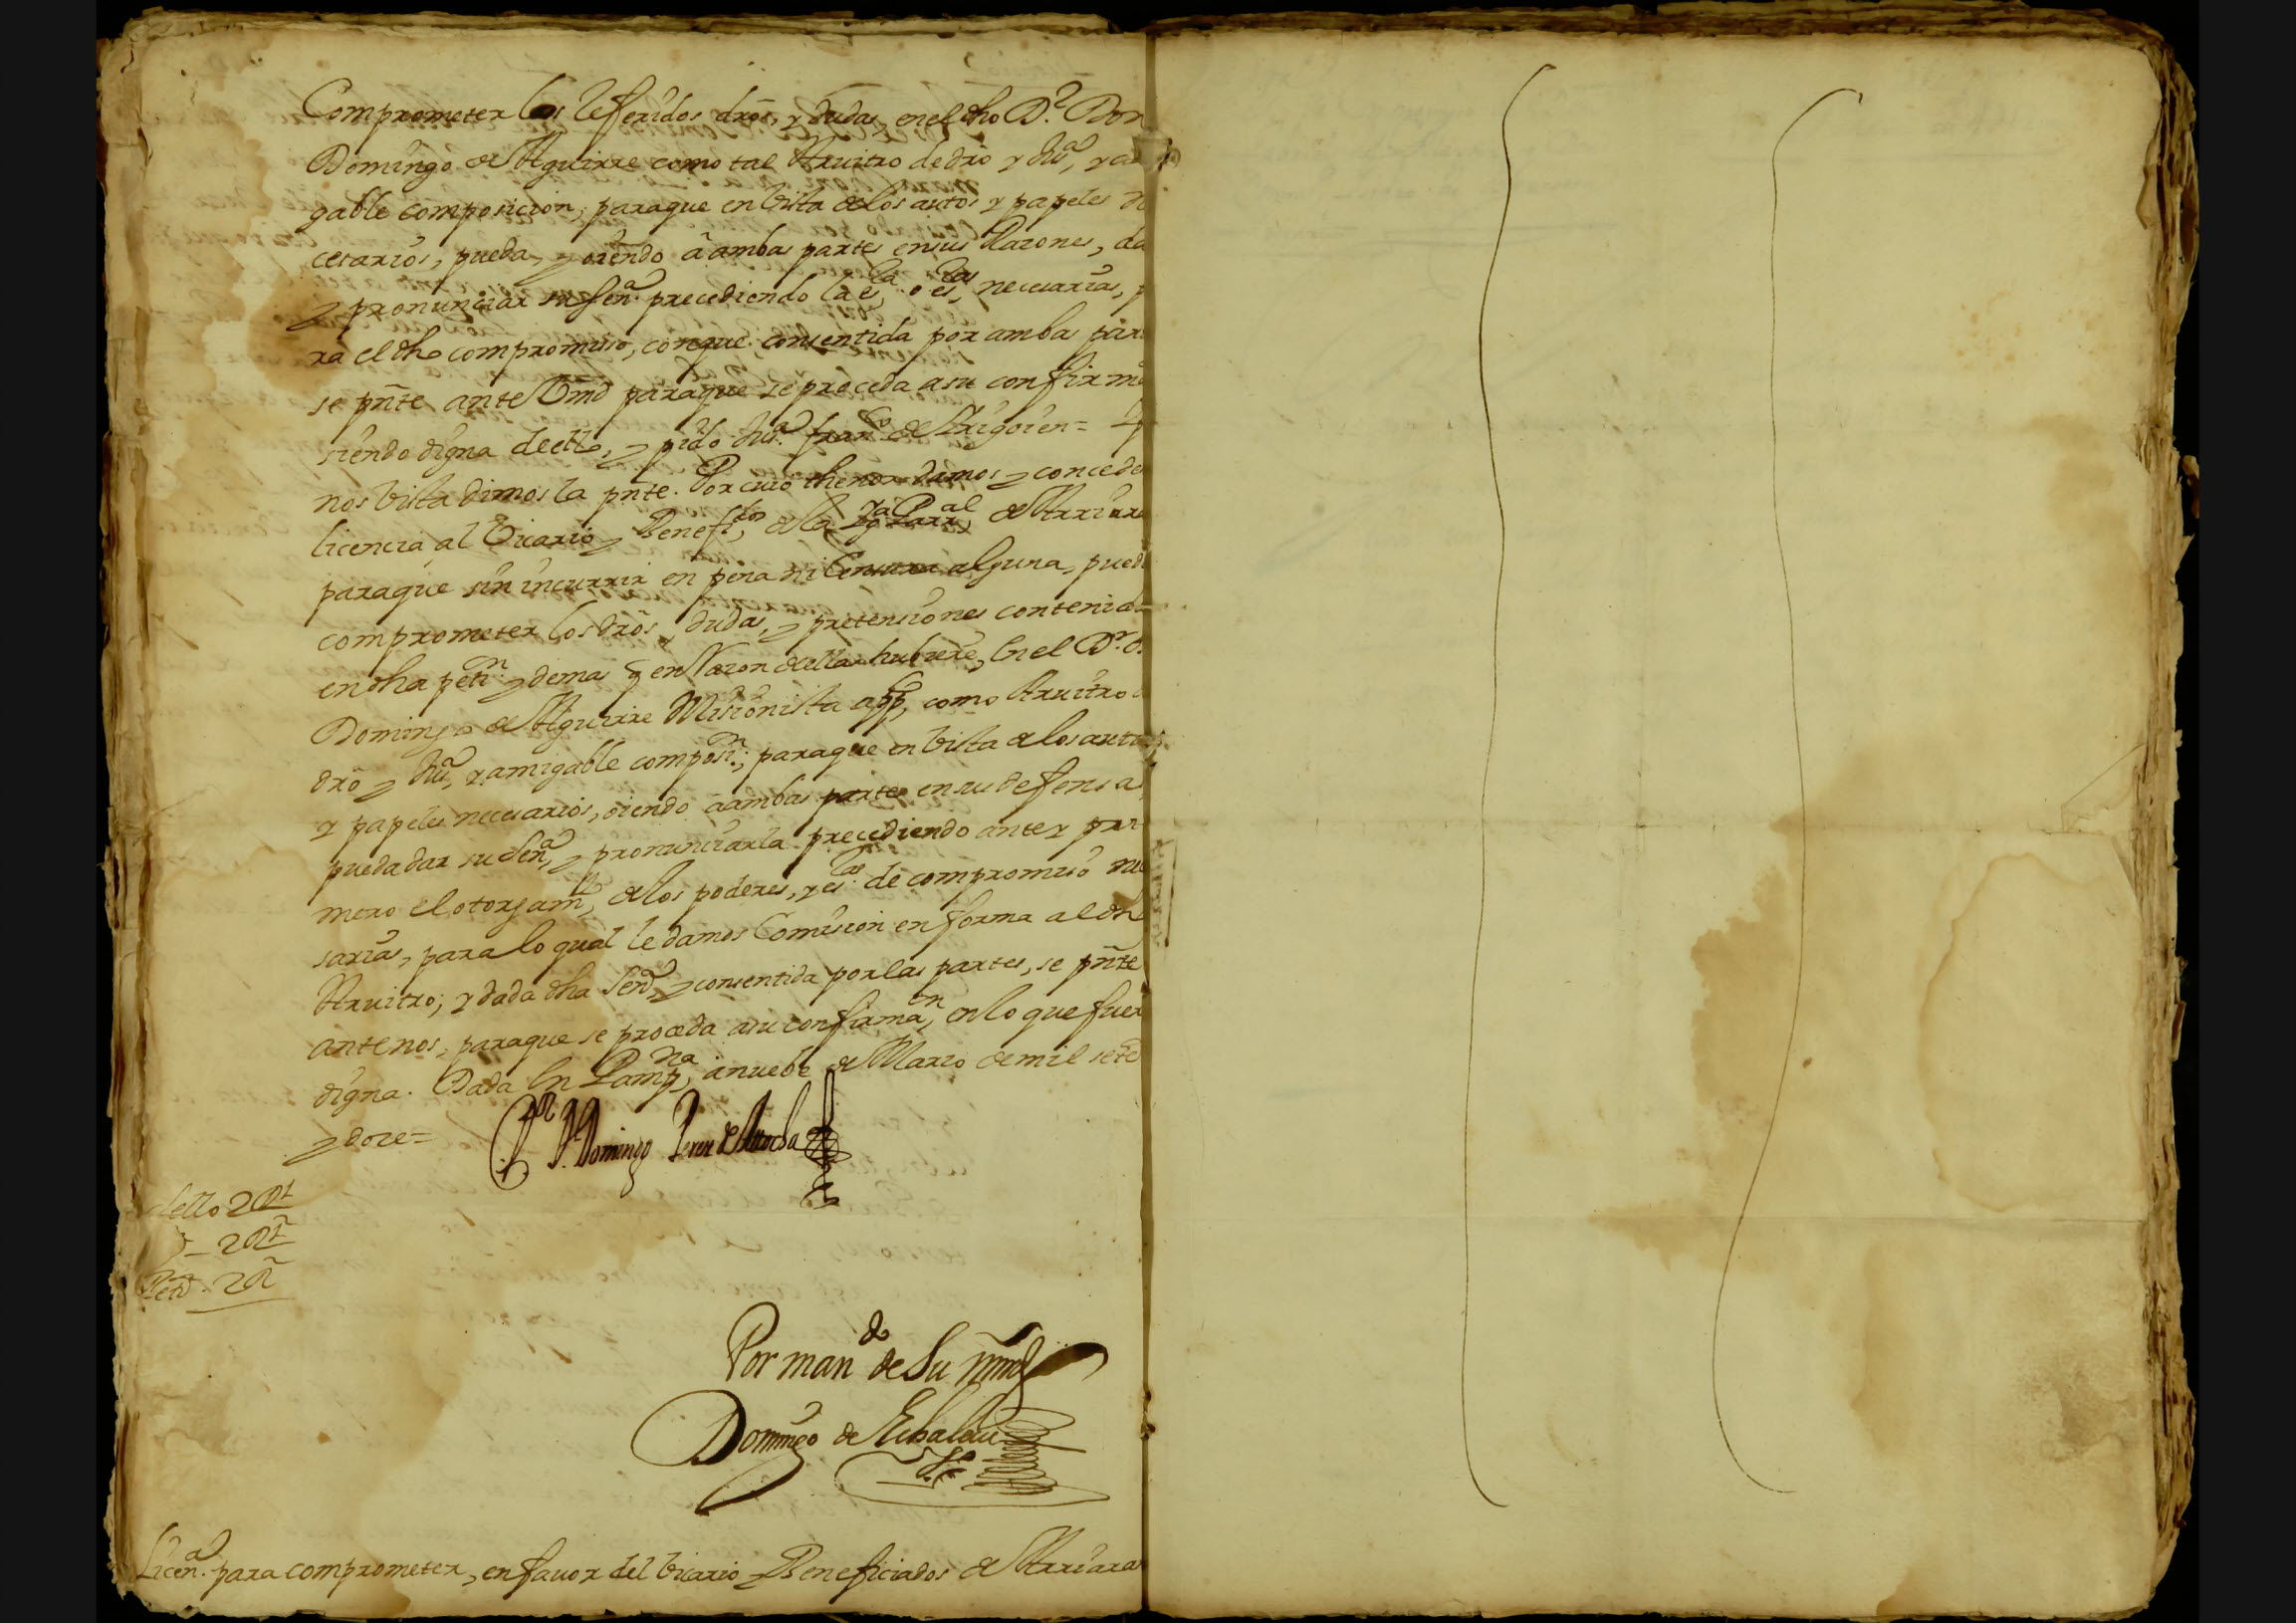 Comprometer los Referidos dr̃os, y dudas, en el dho D.r Don
Domingo de Aguirre como tal Arvitro de dr̃o y Jus.a, y a
gable composicion, para que en Vista de los autos y papeles ne
cesarios, pueda, y oiendo â ambas partes en sus Razones, da
y pronunciar su Sen.a precediendo la es.ra o es.ras necesarias, p
ra el dho compromiso, con que consentida por ambas par
se pñte ante Vmd para que se proceda a su confirm
siendo digna de ello, y pido Jus.a Fran.co de Irigoien =
nos Vista dimos la pñte. Por cuio thenor damos y concede
licencia, al Vicario y Benefi.dos de la Yg.a Parr.al de Arriara
para que sin incurrir en pena ni Censura alguna, pued
comprometer los dr̃os, dudas, y pretensiones contenid
en dha peti.n y demas q en Razon de ellas hubiere, en el D.r D.
Domingo de Aguirre Misionista app.co, como Arvitro
dr̃o y Jus.a, y amigable composi.n; para que en Vista de los auto
y papeles necesarios, oiendo â ambas partes en su deffensa,
pueda dar su Sen.a, y pronunciarla precediendo ante y pri
mero el otorgam.to, de los poderes, y es.ras de compromiso ne
sarias, para lo qual le damos Comision en forma al dh
Arvitro; y dada dha Sen.a, y consentida por las partes, se pñte
ante nos, para que se proceda a su confirma.n, en lo que fuer
digna. Dada En Pamp.na, a nuebe de Marzo de mil sete
y doze =
D. Domingo Perez de Atocha
Sello 2 R.s
2 R.s
Peti.n 2 R
Por man.do de Su Mrd
Domingo de Echalecu
S.rio
Licen.a para comprometer, en favor del Vicario y Beneficiados de Arriara